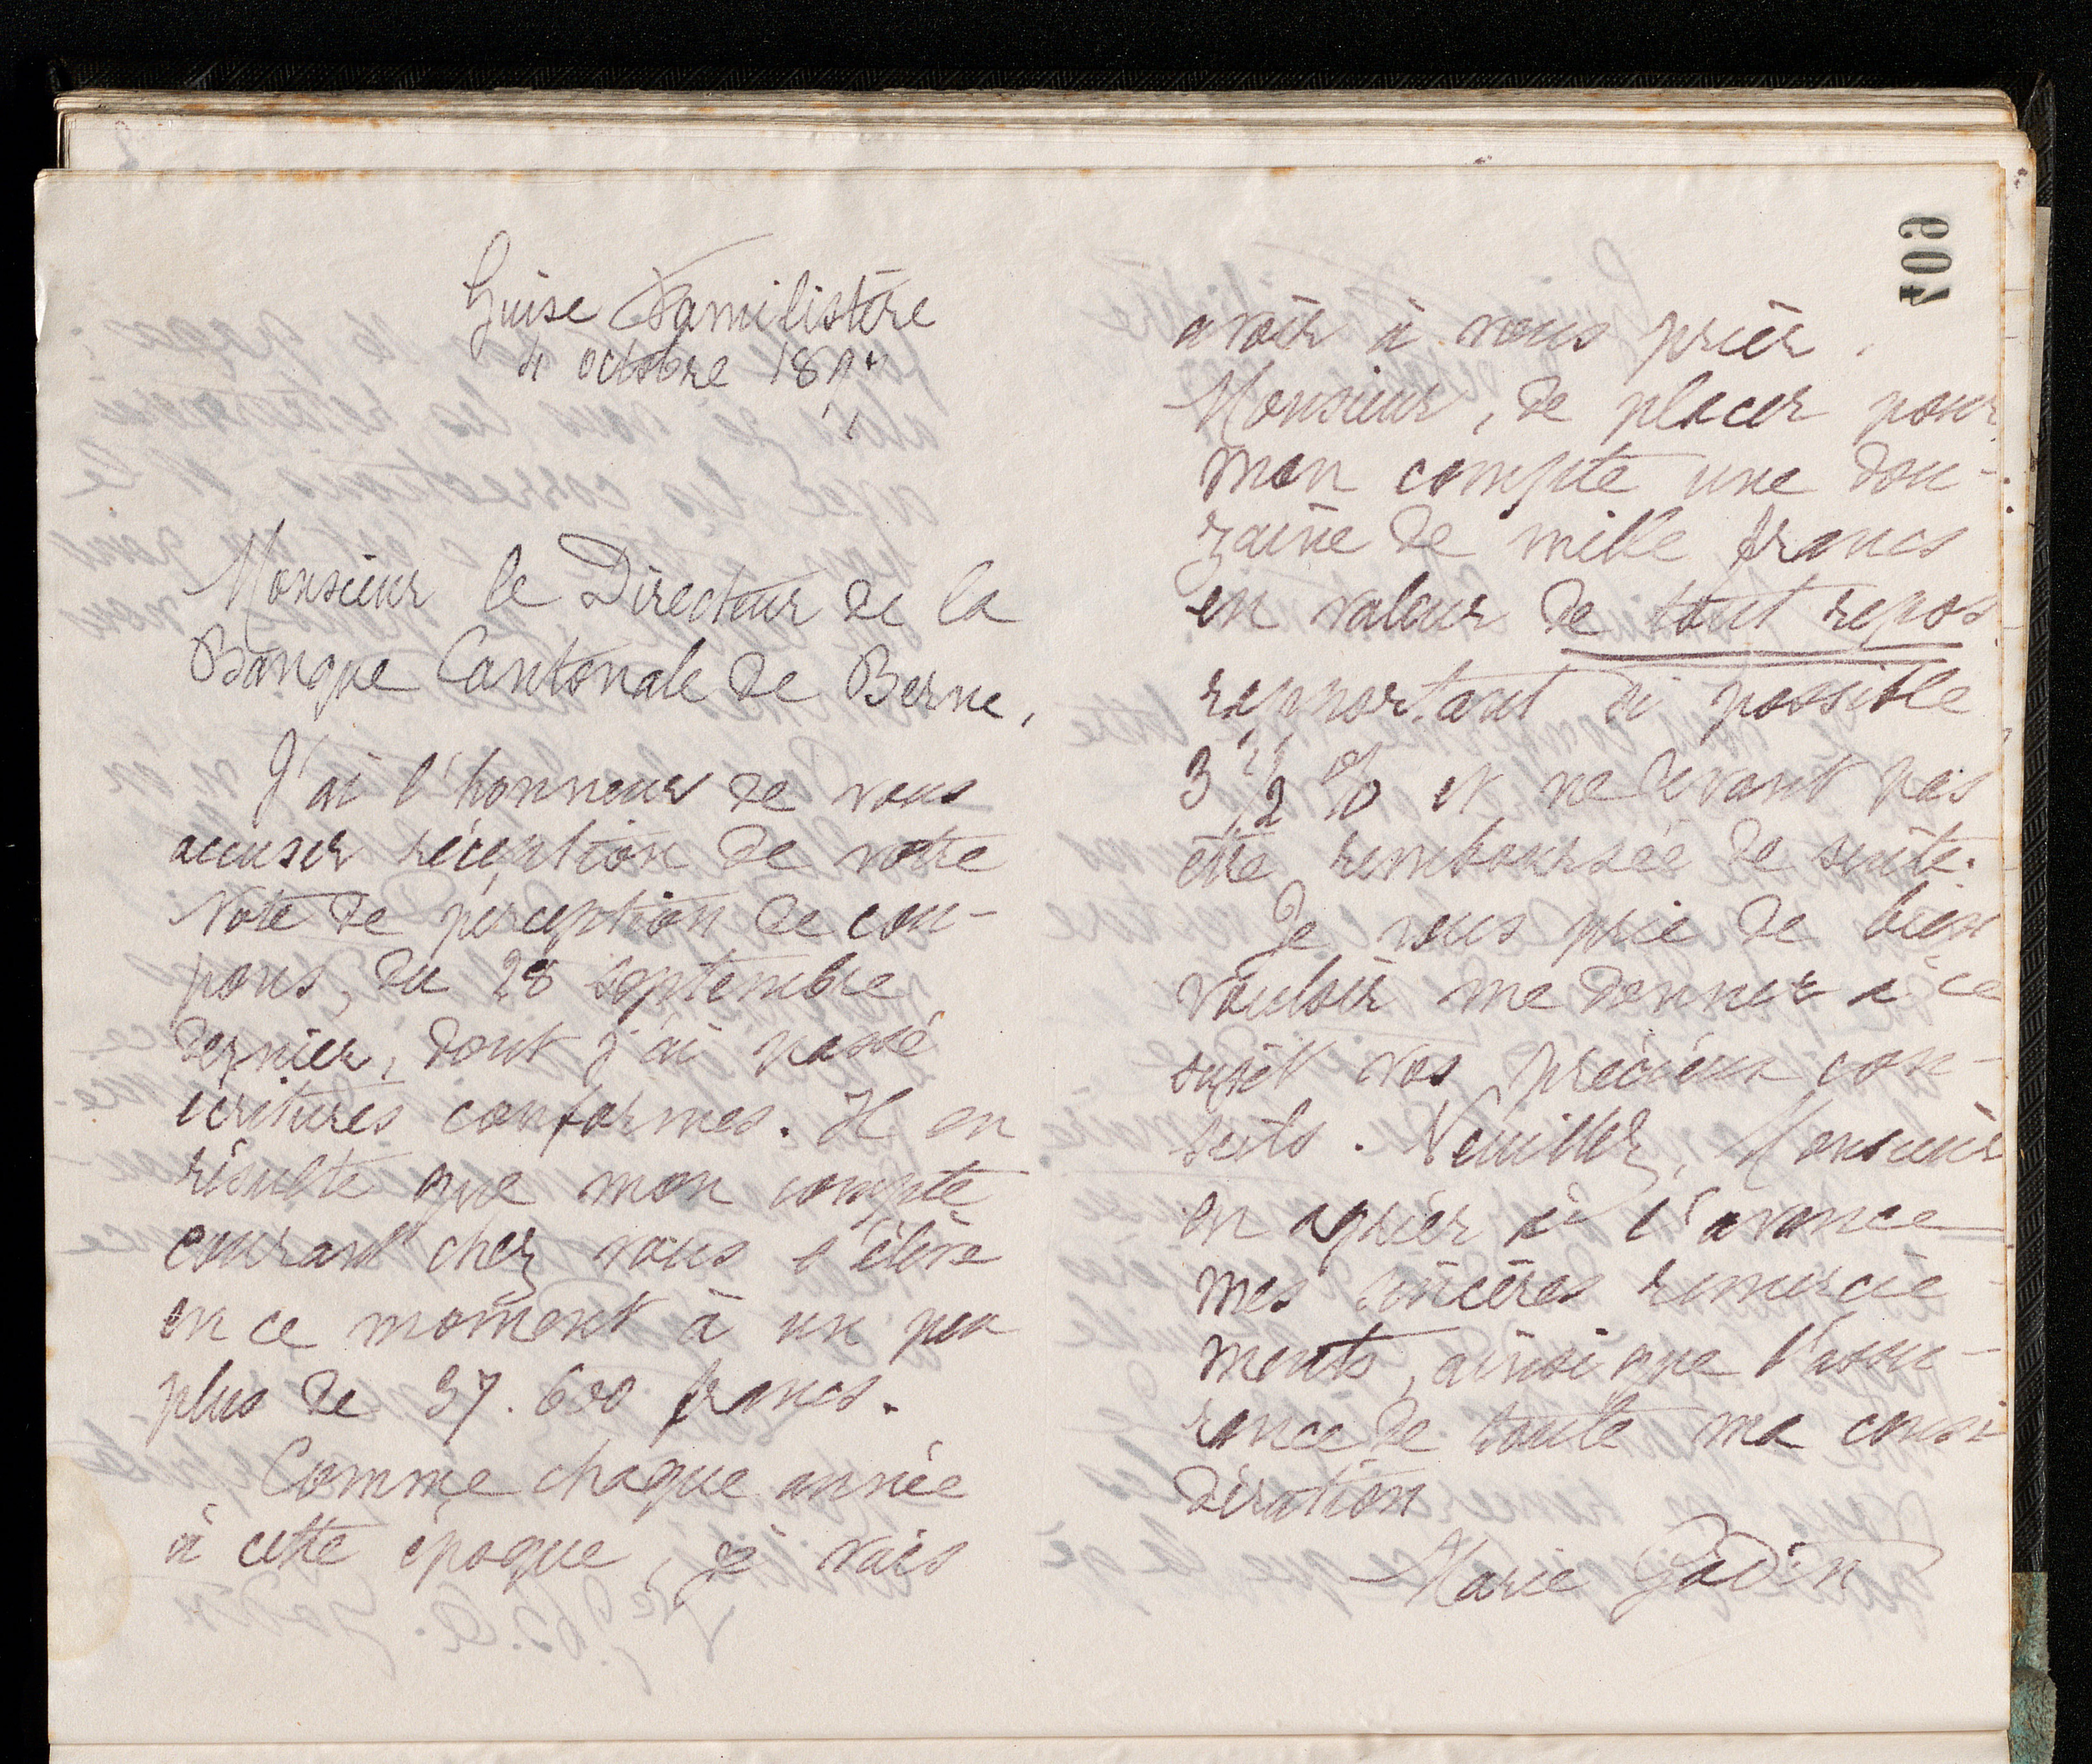 Guise Familistère
4 octobre 1897
Monsieur le Directeur de la
Banque Cantonale de Berne,
J'ai l'honneur de vous
accuser réception de votre
Note de perception de cou-
pons, du 28 septembre
dernier, dont j'ai passé
écritures conformes. Il en
résulte que mon compte
courant chez vous s'élève
en ce moment à un peu
plus de 37.600 francs.
Comme chaque année
à cette époque, je vais
407
avoir à vous prier,
Monsieur, de placer pour
mon compte une dou-
zaine de mille francs
en valeur de tout repos
rapportant si possible
3 1/2 % et ne devant pas
être remboursée de suite.
Je vous prie de bien
vouloir me donner à ce
sujet vos précieux con-
seils. Veuillez, Monsieur
en agréer à l'avance
mes sincères remercie-
ments, ainsi que l'assu-
rance de toute ma consi-
dération
Marie Godin